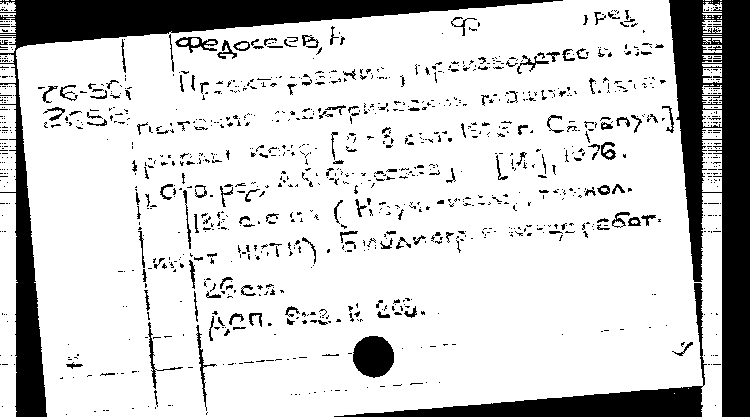 Федосеев, А Ф , ред.
76-80г Проектирование, производство и ис-
2658 пытание электрических машин. Мате-
риалы конф. [ окт. 1975 г. Сарапул.]
[Отв. ред. А.Ф. Федосеев]. [М.], 1976.
132 с. с ил. (Науч.-исслед. технол.
ин-т НИТИ). Библиогр. в конце работ.
26 см.
Доп. Инв. №